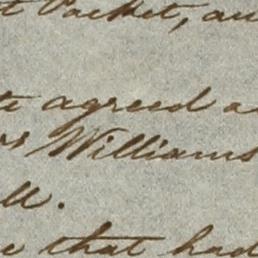 t Packet, an
te agreed a
rs Williams
ll.
e that had